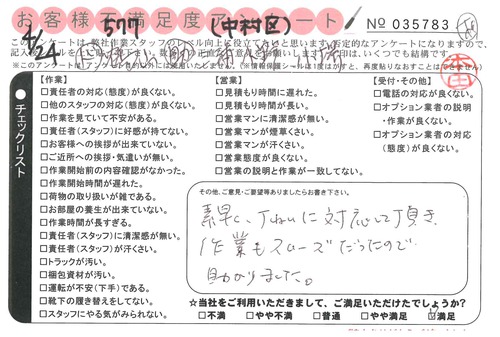 お客様不満足度アンケート
577
(中村区)
№ 035783
4/24
チェックリスト
【作業】
□責任者の対応(態度)が良くない。
□他のスタッフの対応(態度)が良くない。
□作業を見ていて不安がある。
□責任者(スタッフ)に好感が持てない。
□お客様への挨拶が出来ていない。
□ご近所への挨拶・気遣いが無い。
□作業開始前の内容確認がなかった。
□作業開始時間が遅れた。
□荷物の取り扱いが雑である。
□お部屋の養生が出来ていない。
□作業時間が長すぎる。
□責任者(スタッフ)に清潔感が無い。
□責任者(スタッフ)が汗くさい。
□トラックが汚い。
□梱包資材が汚い。
□運転が不安(下手)である。
□靴下の履き替えをしてない。
□スタッフにやる気がみられない。
【営業】
□見積もり時間に遅れた。
□見積もり時間が長い。
□営業マンに清潔感が無い。
□営業マンが煙草くさい。
□営業マンが汗くさい。
□営業態度が良くない。
□営業の説明と作業が一致してない。
【受付・その他】
□電話の対応が良くない。
□オプション業者の説明
・作業が良くない。
□オプション業者の対応
(態度)が良くない。
その他、ご意見・ご要望等ありましたらお書き下さい。
素早く、丁ねいに対応して頂き、
作業もスムーズだったので
助かりました。
☆当社をご利用いただきまして、ご満足いただけたでしょうか?
□不満 □やや不満 □普通 □やや満足 ☑満足